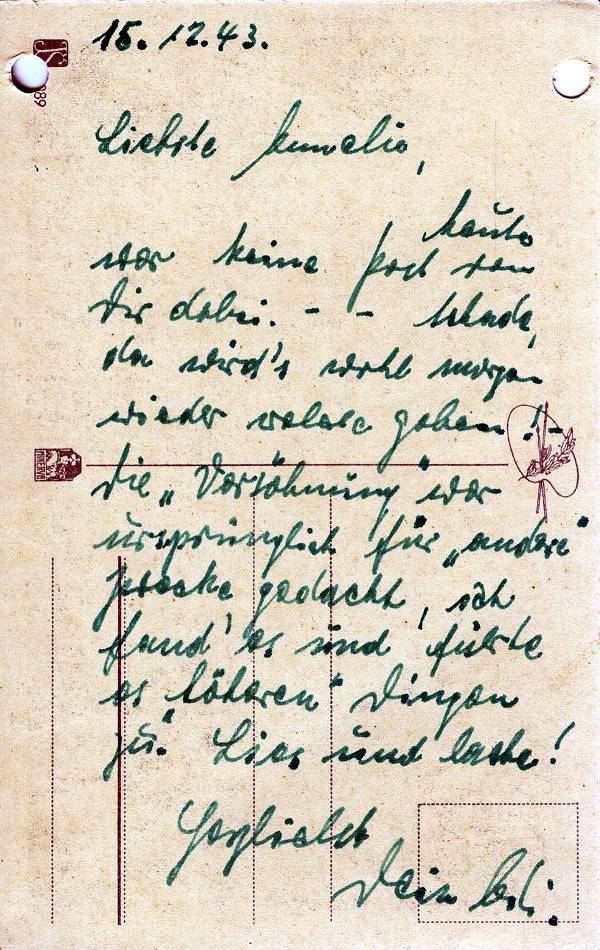 15. 12. 43.
Liebste Annelie,
heute
war keine Post von
Dir dabei. - - Schade,
da wird's wohl morgen
wieder welche geben!-
Die „Versöhnung" war
ursprünglich für „andere"
Zwecke gedacht, ich
fand' es und führte
es „höheren" Dingen
zu. Lies und lache!
Herzlichst
Dein